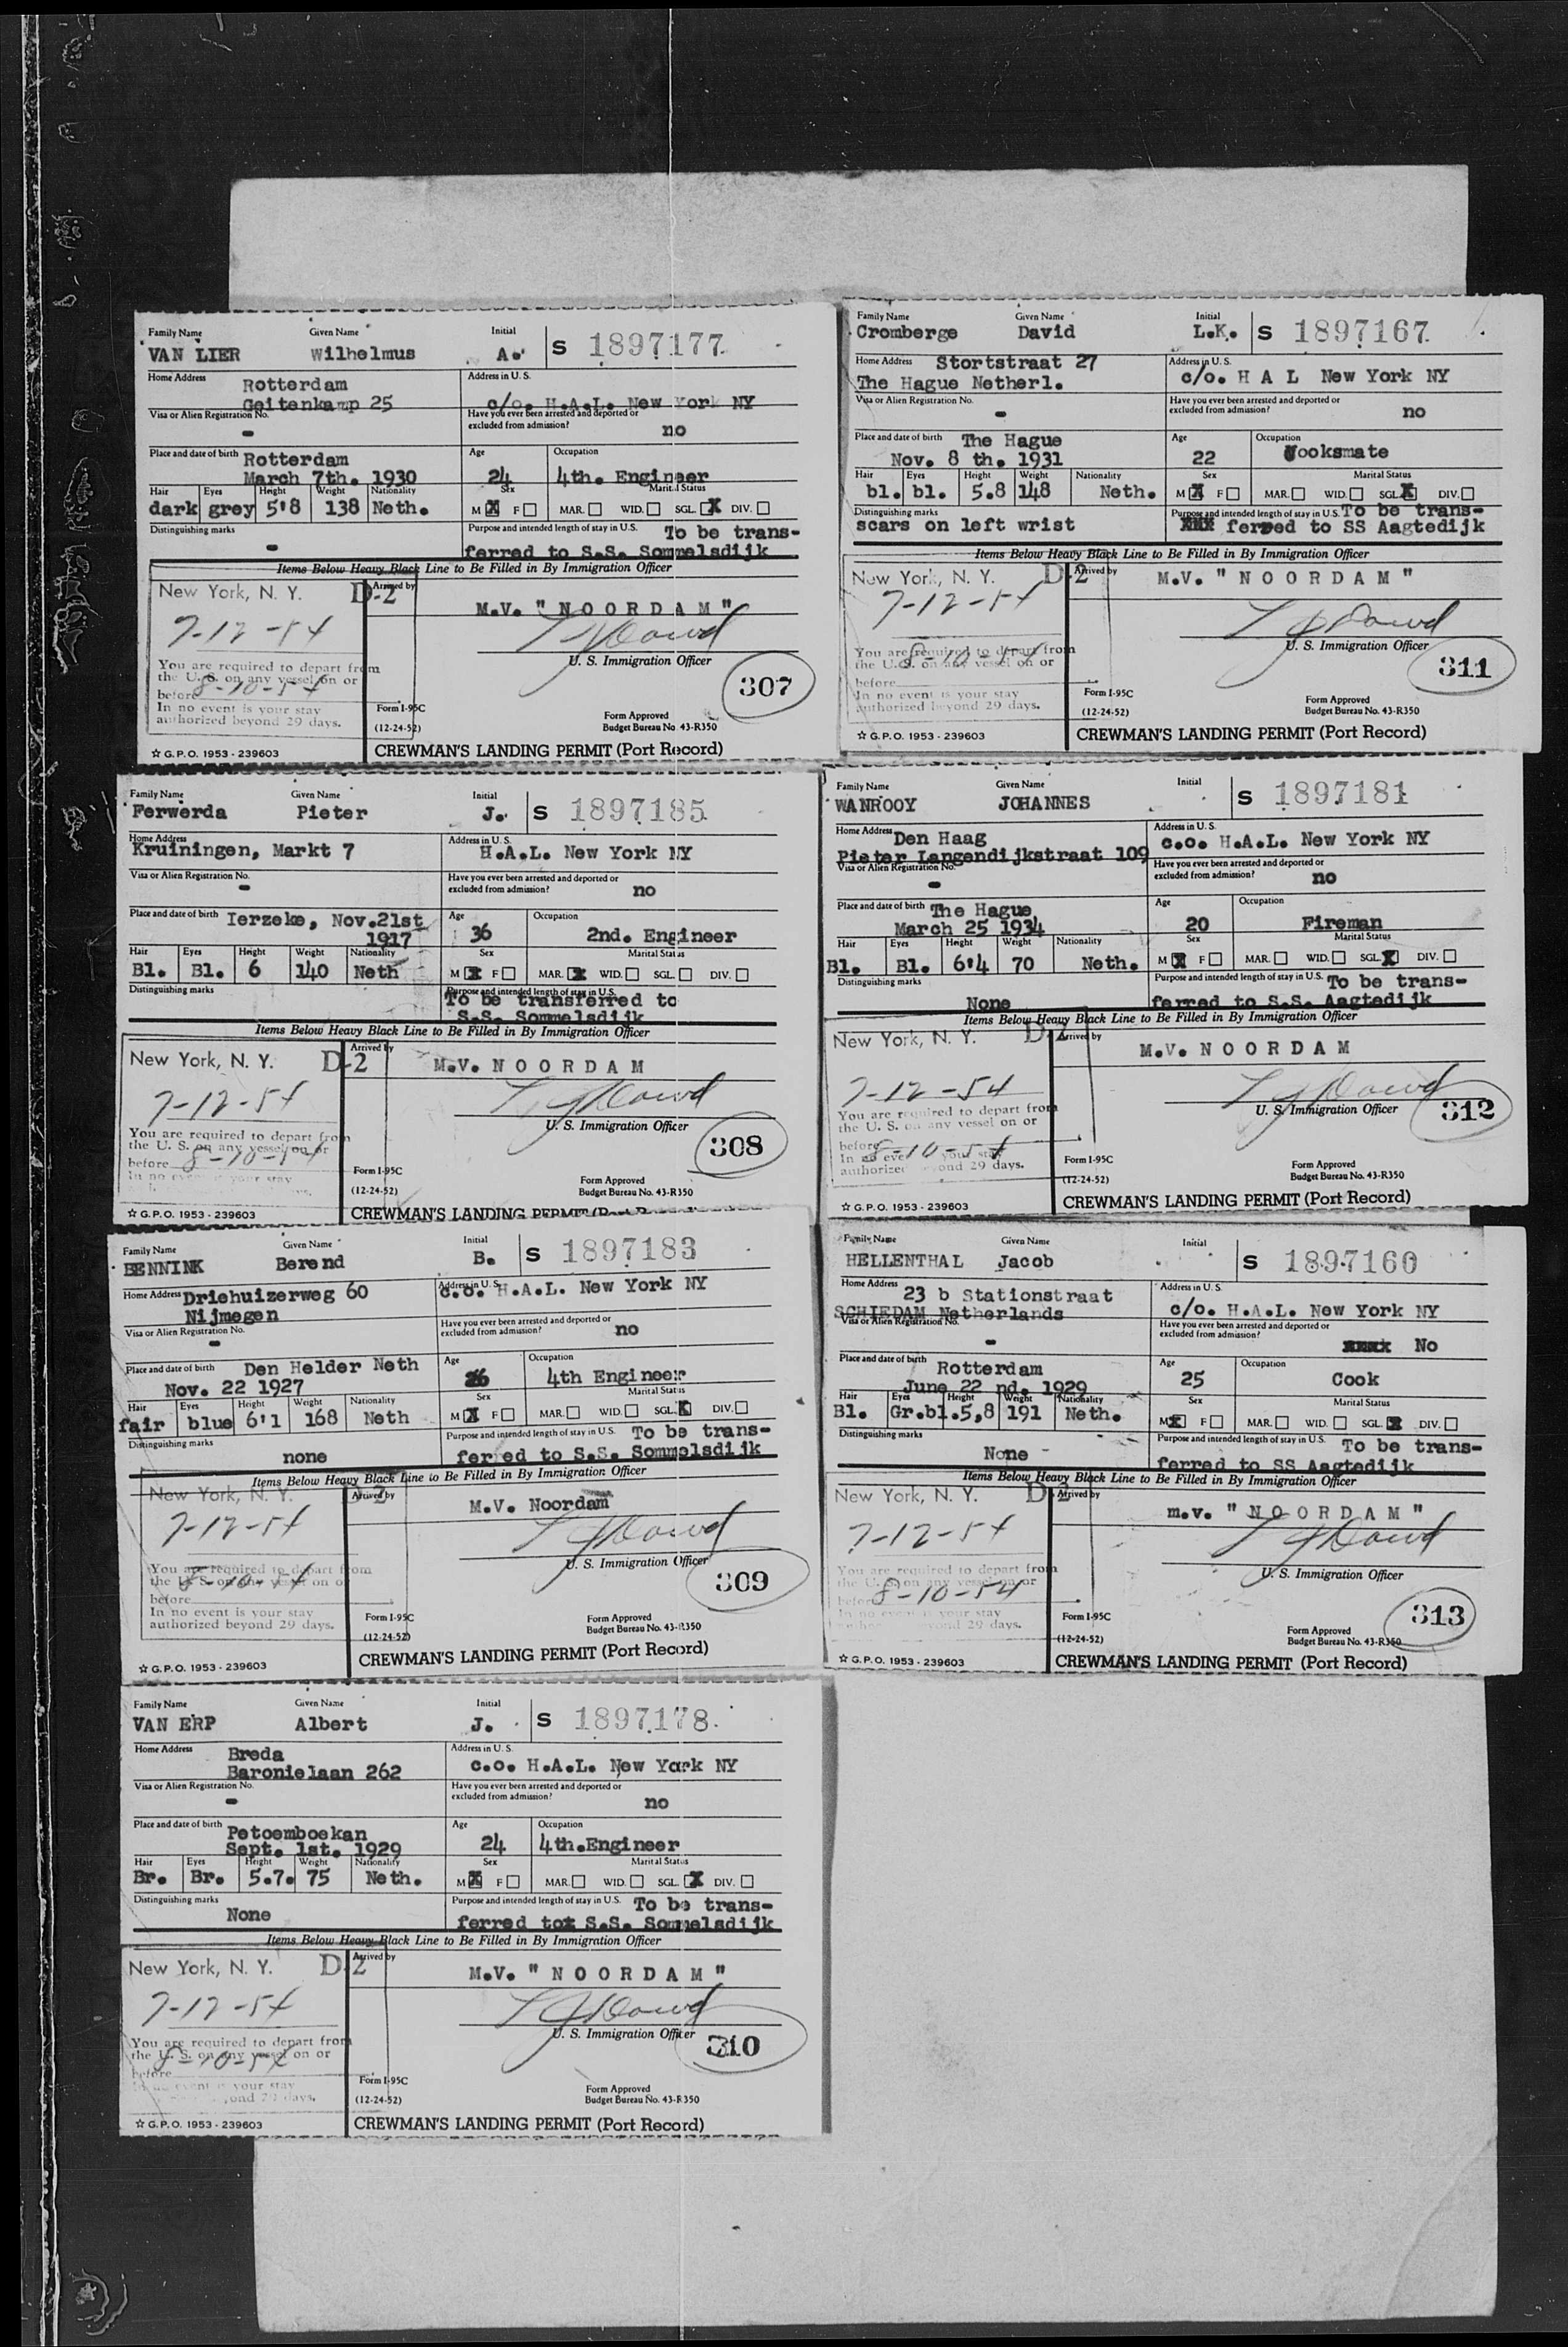 Family Name Given Name Initial
VAN LIER Wilhelmus A. S 1897177
Home Address Rotterdam Address in U. S.
Geitenkamp 25 c/o. H.A.L. New York NY
Visa or Alien Registration No. - Have you ever been arrested and deported or excluded from admission? no
Place and date of birth Rotterdam Age Occupation
March 7th. 1930 24 4th. Engineer
Hair Eyes Height Weight Nationality Sex Marital Status
dark grey 5'8 138 Neth. M X F MAR. WID. SGL. X DIV.
Distinguishing marks - Purpose and intended length of stay in U.S. To be trans-
ferred to S.S. Sommelsdijk
Items Below Heavy Black Line to Be Filled in By Immigration Officer
New York, N. Y. D-2 Arrived by
M.V. "NOORDAM"
7-12-54
U. S. Immigration Officer
You are required to depart from
the U. S. on any vessel on or
before 8-10-54
307
In no event is your stay
authorized beyond 29 days.
Form I-95C
(12-24-52)
Form Approved
Budget Bureau No. 43-R350
☆ G.P.O. 1953 - 239603 CREWMAN'S LANDING PERMIT (Port Record)
Family Name Given Name Initial
Ferwerda Pieter J. S 1897185
Home Address Address in U. S.
Kruiningen, Markt 7 H.A.L. New York NY
Visa or Alien Registration No. - Have you ever been arrested and deported or excluded from admission? no
Place and date of birth Ierzeke, Nov.21st Age Occupation
1917 36 2nd. Engineer
Hair Eyes Height Weight Nationality Sex Marital Status
Bl. Bl. 6 140 Neth M X F MAR. X WID. SGL. DIV.
Distinguishing marks Purpose and intended length of stay in U.S.
To be transferred to
S.S. Sommelsdijk
Items Below Heavy Black Line to Be Filled in By Immigration Officer
New York, N. Y. D-2 Arrived by
M.V. NOORDAM
7-12-54
U. S. Immigration Officer
You are required to depart from
the U. S. on any vessel on or
before 8-10-54
308
In no event is your stay
Form I-95C
(12-24-52)
Form Approved
Budget Bureau No. 43-R350
☆ G.P.O. 1953 - 239603 CREWMAN'S LANDING PERMIT
Family Name Given Name Initial
BENNINK Berend B. S 1897183
Home Address Driehuizerweg 60 Address in U. S.
Nijmegen c.o. H.A.L. New York NY
Visa or Alien Registration No. - Have you ever been arrested and deported or excluded from admission? no
Place and date of birth Den Helder Neth Age Occupation
Nov. 22 1927 26 4th Engineer
Hair Eyes Height Weight Nationality Sex Marital Status
fair blue 6'1 168 Neth M X F MAR. WID. SGL. X DIV.
Distinguishing marks none Purpose and intended length of stay in U.S. To be trans-
ferred to S.S. Sommelsdijk
Items Below Heavy Black Line to Be Filled in By Immigration Officer
New York, N. Y. D-2 Arrived by
M.V. Noordam
7-12-54
U. S. Immigration Officer
You are required to depart from
the U. S. on any vessel on or
8-10-54
before
309
In no event is your stay
authorized beyond 29 days.
Form I-95C
(12-24-52)
Form Approved
Budget Bureau No. 43-R350
☆ G.P.O. 1953 - 239603 CREWMAN'S LANDING PERMIT (Port Record)
Family Name Given Name Initial
VAN ERP Albert J. S 1897178
Home Address Breda Address in U. S.
Baronielaan 262 c.o. H.A.L. New York NY
Visa or Alien Registration No. - Have you ever been arrested and deported or excluded from admission? no
Place and date of birth Petoemboekan Age Occupation
Sept. 1st. 1929 24 4th.Engineer
Hair Eyes Height Weight Nationality Sex Marital Status
Br. Br. 5.7. 75 Neth. M X F MAR. WID. SGL. X DIV.
Distinguishing marks None Purpose and intended length of stay in U.S. To be trans-
ferred to S.S. Sommelsdijk
Items Below Heavy Black Line to Be Filled in By Immigration Officer
New York, N. Y. D-2 Arrived by
M.V. "NOORDAM"
7-12-54
U. S. Immigration Officer
You are required to depart from
the U. S. on any vessel on or
8-10-54
before
310
event is your stay
Form I-95C
(12-24-52)
Form Approved
Budget Bureau No. 43-R350
☆ G.P.O. 1953 - 239603 CREWMAN'S LANDING PERMIT (Port Record)
Family Name Given Name Initial
Cromberge David L.K. S 1897167
Home Address Stortstraat 27 Address in U. S.
The Hague Netherl. c/o. H A L New York NY
Visa or Alien Registration No. - Have you ever been arrested and deported or excluded from admission? no
Place and date of birth The Hague Age Occupation
Nov. 8 th. 1931 22 Cooksmate
Hair Eyes Height Weight Nationality Sex Marital Status
bl. bl. 5.8 148 Neth. M X F MAR. WID. SGL. X DIV.
Distinguishing marks Purpose and intended length of stay in U.S. To be trans-
scars on left wrist ferred to SS Aagtedijk
Items Below Heavy Black Line to Be Filled in By Immigration Officer
New York, N. Y. D-2 Arrived by
M.V. "NOORDAM"
7-12-54
U. S. Immigration Officer
You are required to depart from
the U. S. on any vessel on or
8-10-54
before
311
In no event is your stay
authorized beyond 29 days.
Form I-95C
(12-24-52)
Form Approved
Budget Bureau No. 43-R350
☆ G.P.O. 1953 - 239603 CREWMAN'S LANDING PERMIT (Port Record)
Family Name Given Name Initial
WANROOY JOHANNES S 1897181
Home Address Den Haag Address in U. S.
Pieter Langendijkstraat 109 c.o. H.A.L. New York NY
Visa or Alien Registration No. - Have you ever been arrested and deported or excluded from admission? no
Place and date of birth The Hague Age Occupation
March 25 1934 20 Fireman
Hair Eyes Height Weight Nationality Sex Marital Status
Bl. Bl. 6'4 70 Neth. M X F MAR. WID. SGL. X DIV.
Distinguishing marks None Purpose and intended length of stay in U.S. To be trans-
ferred to S.S. Aagtedijk
Items Below Heavy Black Line to Be Filled in By Immigration Officer
New York, N. Y. D-2 Arrived by
M.V. NOORDAM
7-12-54
U. S. Immigration Officer
You are required to depart from
the U. S. on any vessel on or
before 8-10-54
312
In no event is your stay
authorized beyond 29 days.
Form I-95C
(12-24-52)
Form Approved
Budget Bureau No. 43-R350
☆ G.P.O. 1953 - 239603 CREWMAN'S LANDING PERMIT (Port Record)
Family Name Given Name Initial
HELLENTHAL Jacob S 1897160
Home Address 23 b Stationstraat Address in U. S.
SCHIEDAM Netherlands c/o. H.A.L. New York NY
Visa or Alien Registration No. - Have you ever been arrested and deported or excluded from admission? No
Place and date of birth Rotterdam Age Occupation
June 22 nd. 1929 25 Cook
Hair Eyes Height Weight Nationality Sex Marital Status
Bl. Gr.bl. 5,8 191 Neth. M X F MAR. WID. SGL. X DIV.
Distinguishing marks None Purpose and intended length of stay in U.S. To be trans-
ferred to SS Aagtedijk
Items Below Heavy Black Line to Be Filled in By Immigration Officer
New York, N. Y. D-2 Arrived by
m.v. "NOORDAM"
7-12-54
U. S. Immigration Officer
You are required to depart from
the U. S. on any vessel on or
before 8-10-54
313
In no event is your stay
beyond 29 days.
Form I-95C
(12-24-52)
Form Approved
Budget Bureau No. 43-R350
☆ G.P.O. 1953 - 239603 CREWMAN'S LANDING PERMIT (Port Record)